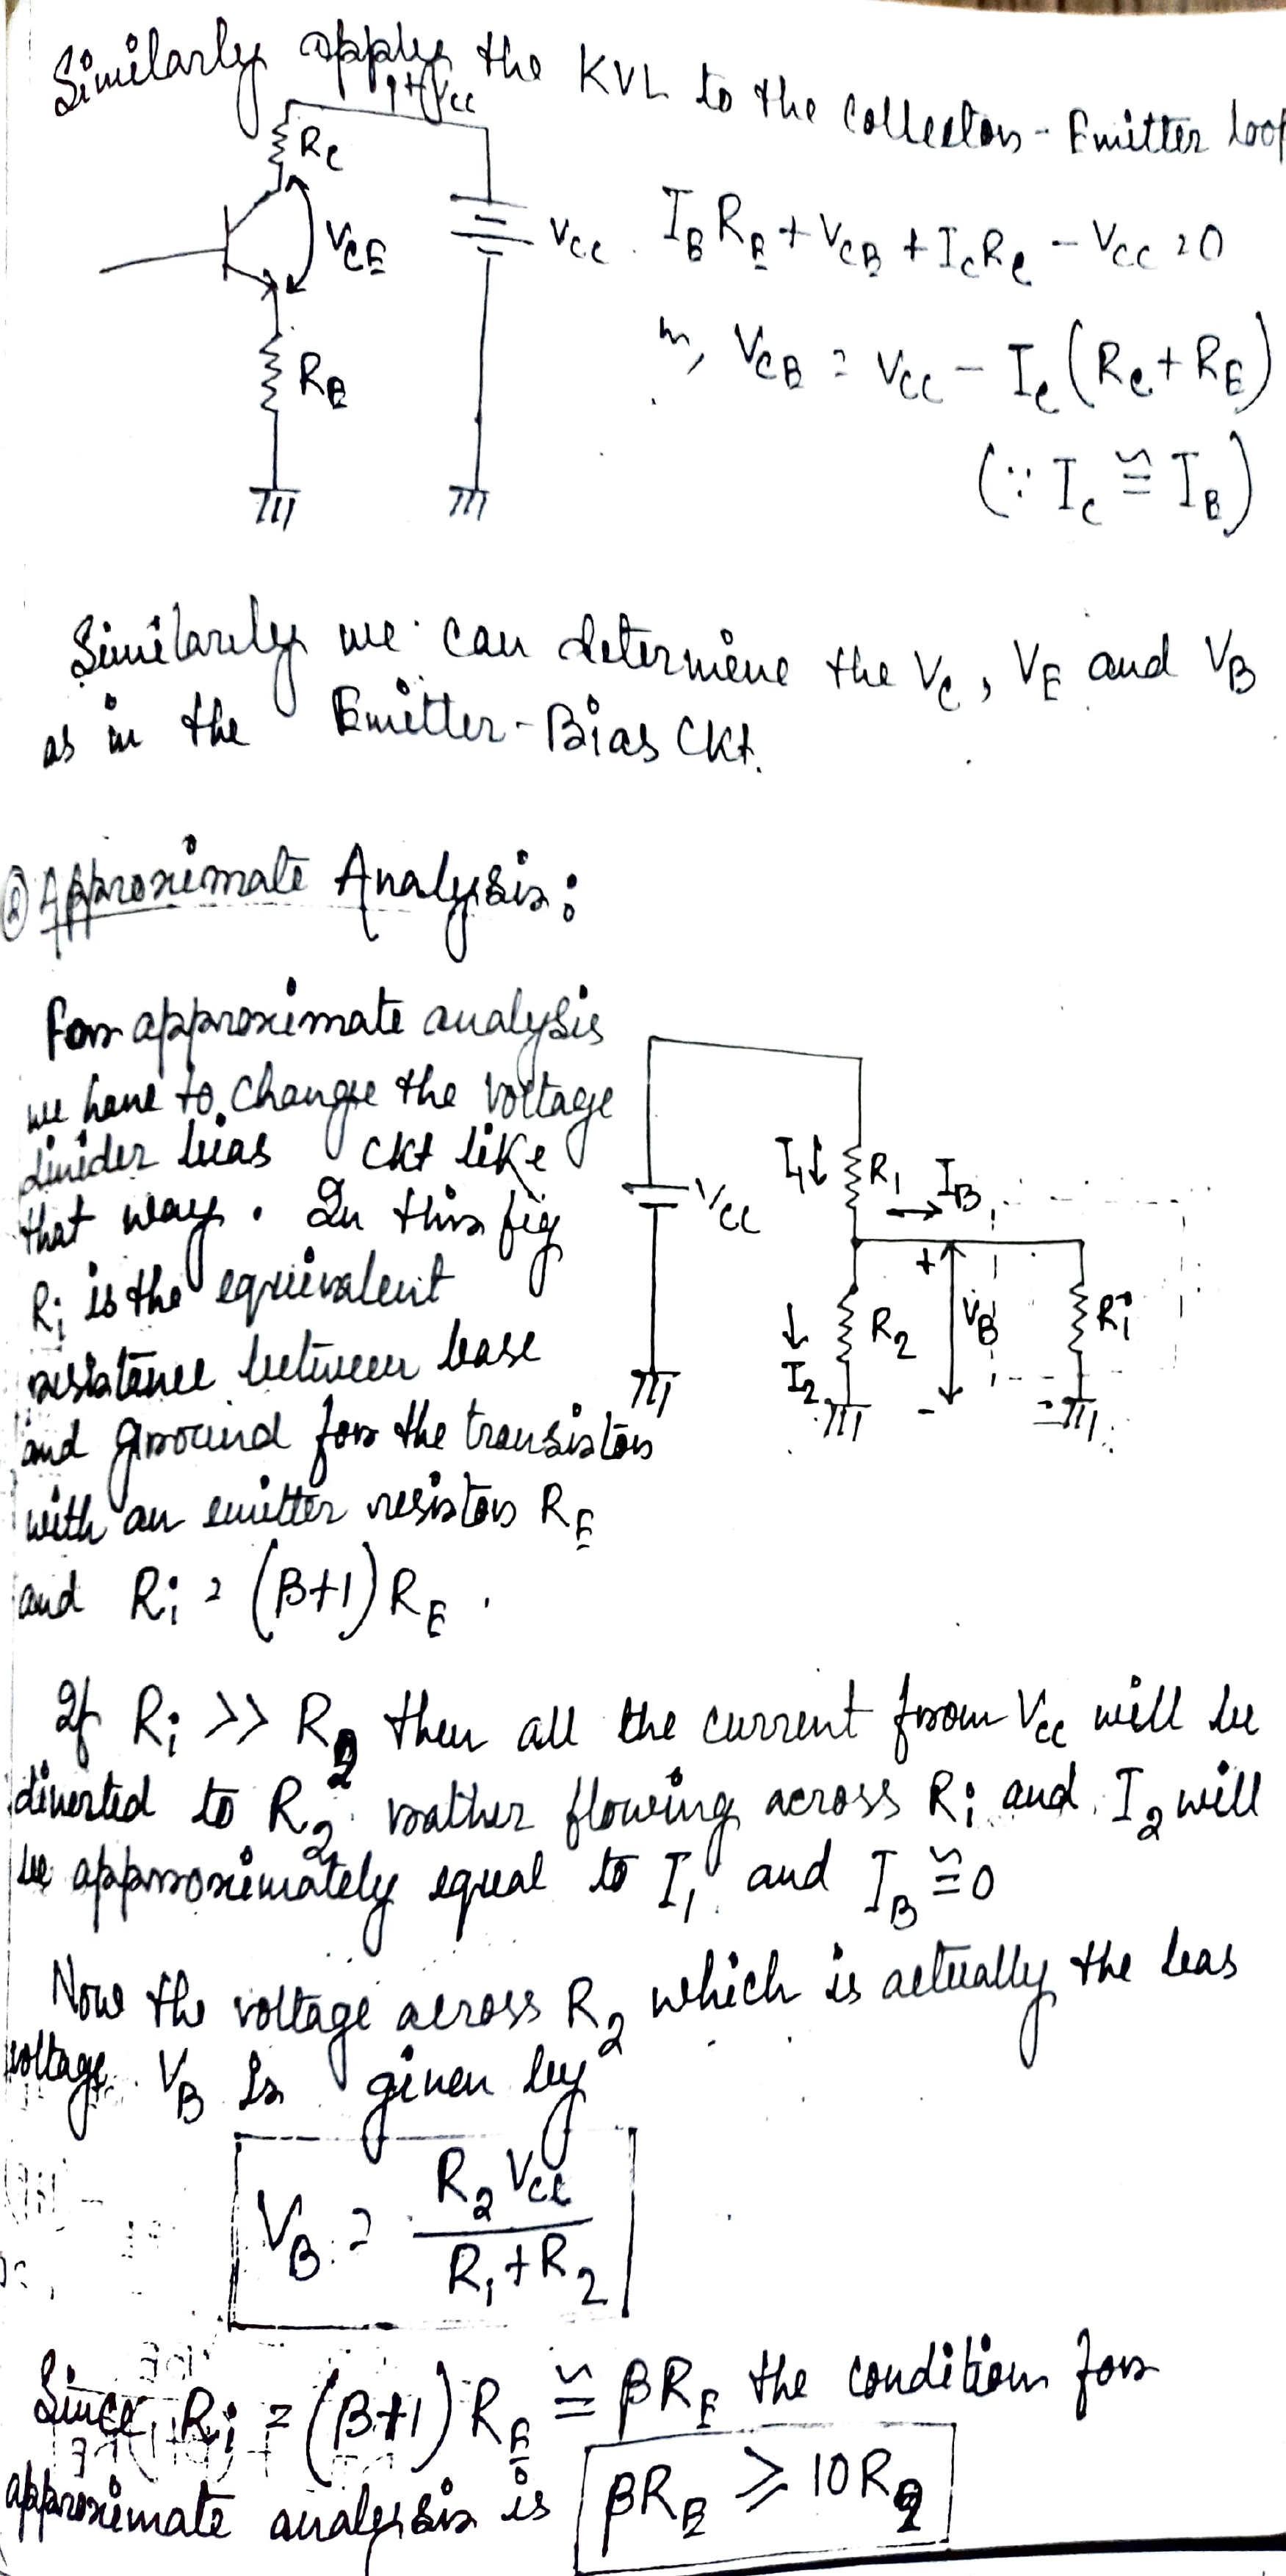 Similarly apply the KVL to the Collector-Emitter loop
+Vcc
Rc
VCE
Vcc
RE
IE RE + VCE + Ic Rc - Vcc = 0
or, VCE = Vcc - Ic (Rc + RE)
(∵ Ic ≅ IE)
Similarly we can determine the Vc, VE and VB
as in the Emitter-Bias Ckt.
② Approximate Analysis:
For approximate analysis
we have to change the voltage
divider bias Ckt like
that way. In this fig
Ri is the equivalent
resistance between base
and ground for the transistor
with an emitter resistor RE
and Ri = (β+1) RE.
Vcc
I1↓
R1
IB
→
+
VB
-
↓
I2
R2
Ri
If Ri >> R2 then all the current from Vcc will be
diverted to R2 rather flowing across Ri and I2 will
be approximately equal to I1 and IB ≅ 0
Now the voltage across R2 which is actually the bas
voltage VB is given by
VB = R2 Vcc / R1 + R2
Since, Ri = (β+1) RE ≅ βRE the condition for
approximate analysis is βRE ≥ 10R2